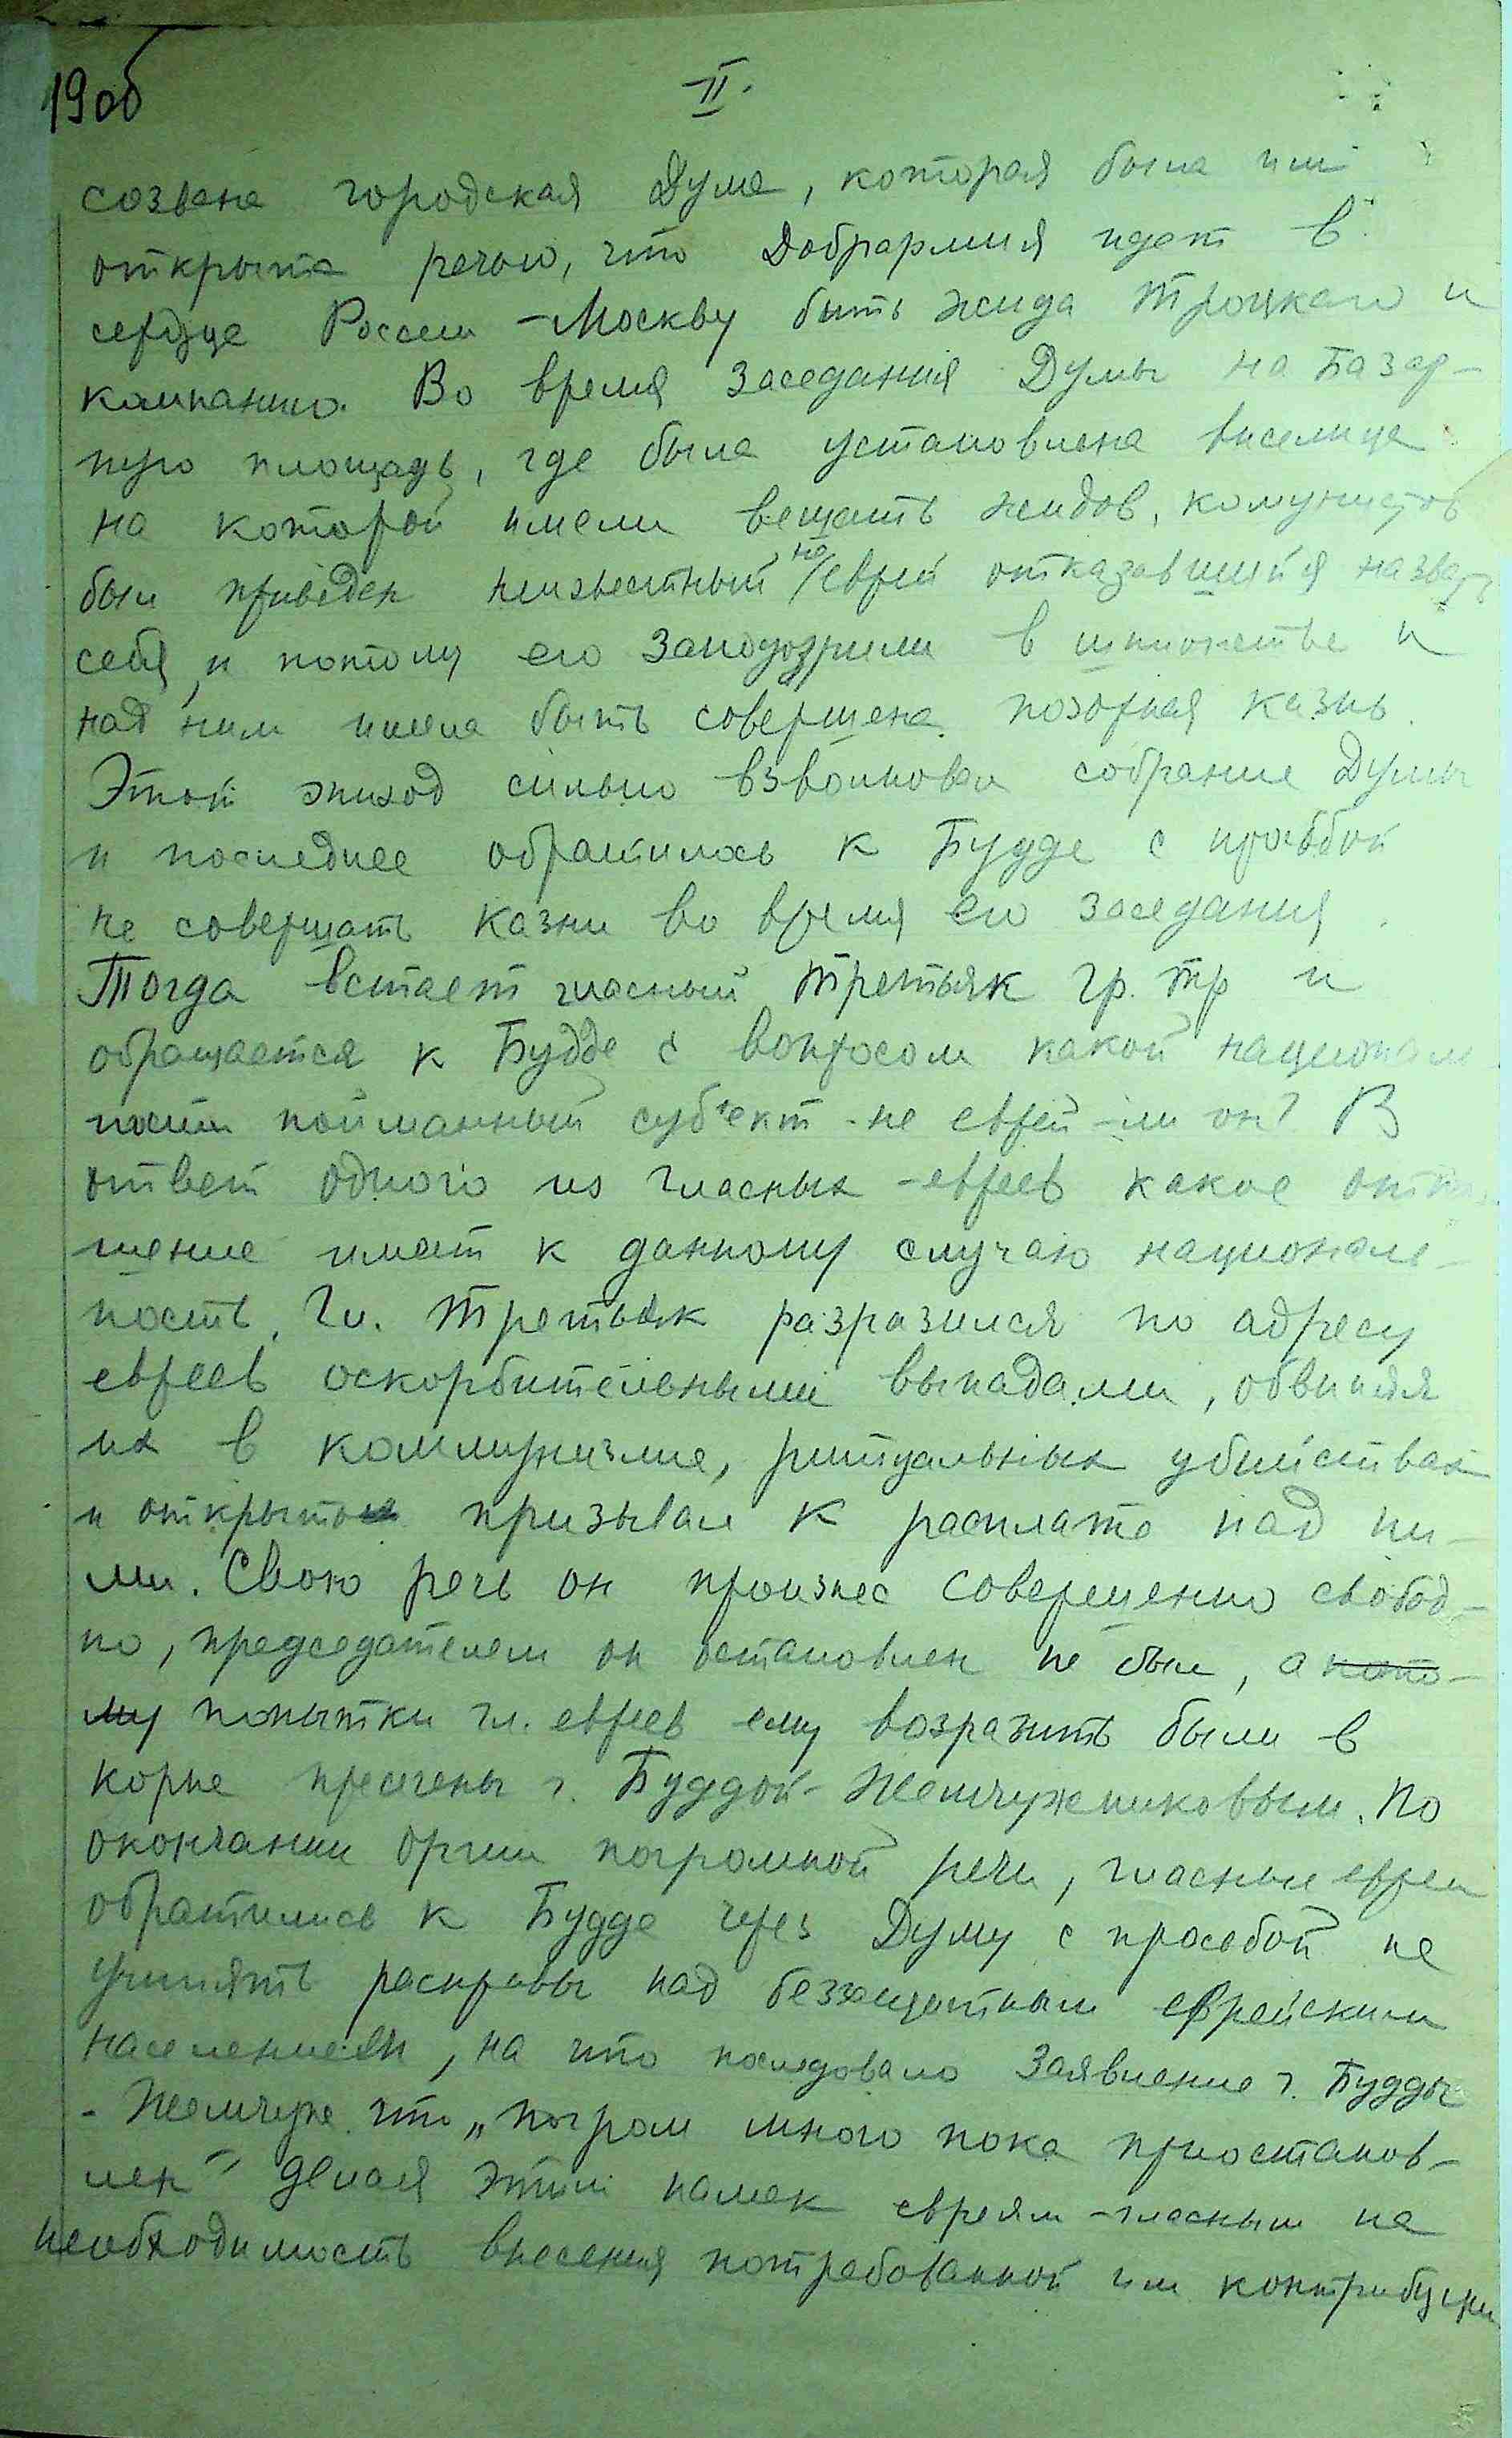 190б
II.
созвана городская Дума, которая была им
открыта речью, что Добрармия идет в
сердце России – Москву бить жида Троцкаго и
компанию. Во время заседания Думы на Базар-
ную площадь, где была установлена виселица
на которой имели вешать жидов, комунистов
был приведен неизвестный но/еврей отказавшийся назвать
себя, и потому его заподозрили в шпионстве и
над ним имела быть совершена позорная казнь.
Этот эпизод сильно взволновал собрание Думы
и последнее обратилось к Будде с просьбой
не совершать казни во время его заседания.
Тогда встает гласный Третьяк Гр. Тр и
обращается к Будде с вопросом какой национал
ности пойманный суб'ект - не еврей-ли он? В
ответ одного из гласных - евреев какое отно
шение имеет к данному случаю националь-
ность, Гл. Третьяк разразился по адресу
евреев оскорбительными выпадами, обвиняя
их в коммунизме, ритуальных убийствах
и открыто призывал к расплате над ни-
ми. Свою речь он произнес совершенно свобод-
но, председателем он остановлен не был, а пото-
му попытки гл. евреев ему возразить были в
корне пресечены г. Буддой-Жемчужниковым. По
окончании оргии погромной речи, гласные евреи
обратились к Будде через Думу с просьбой не
учинять расправы над беззащитным еврейским
населением, на что последовало заявление г. Будды
- Жемчуж. что „погром мною пока приостанов-
лен" делая этим намек евреям-гласным на
необходимость внесения потребованной им контрибуции